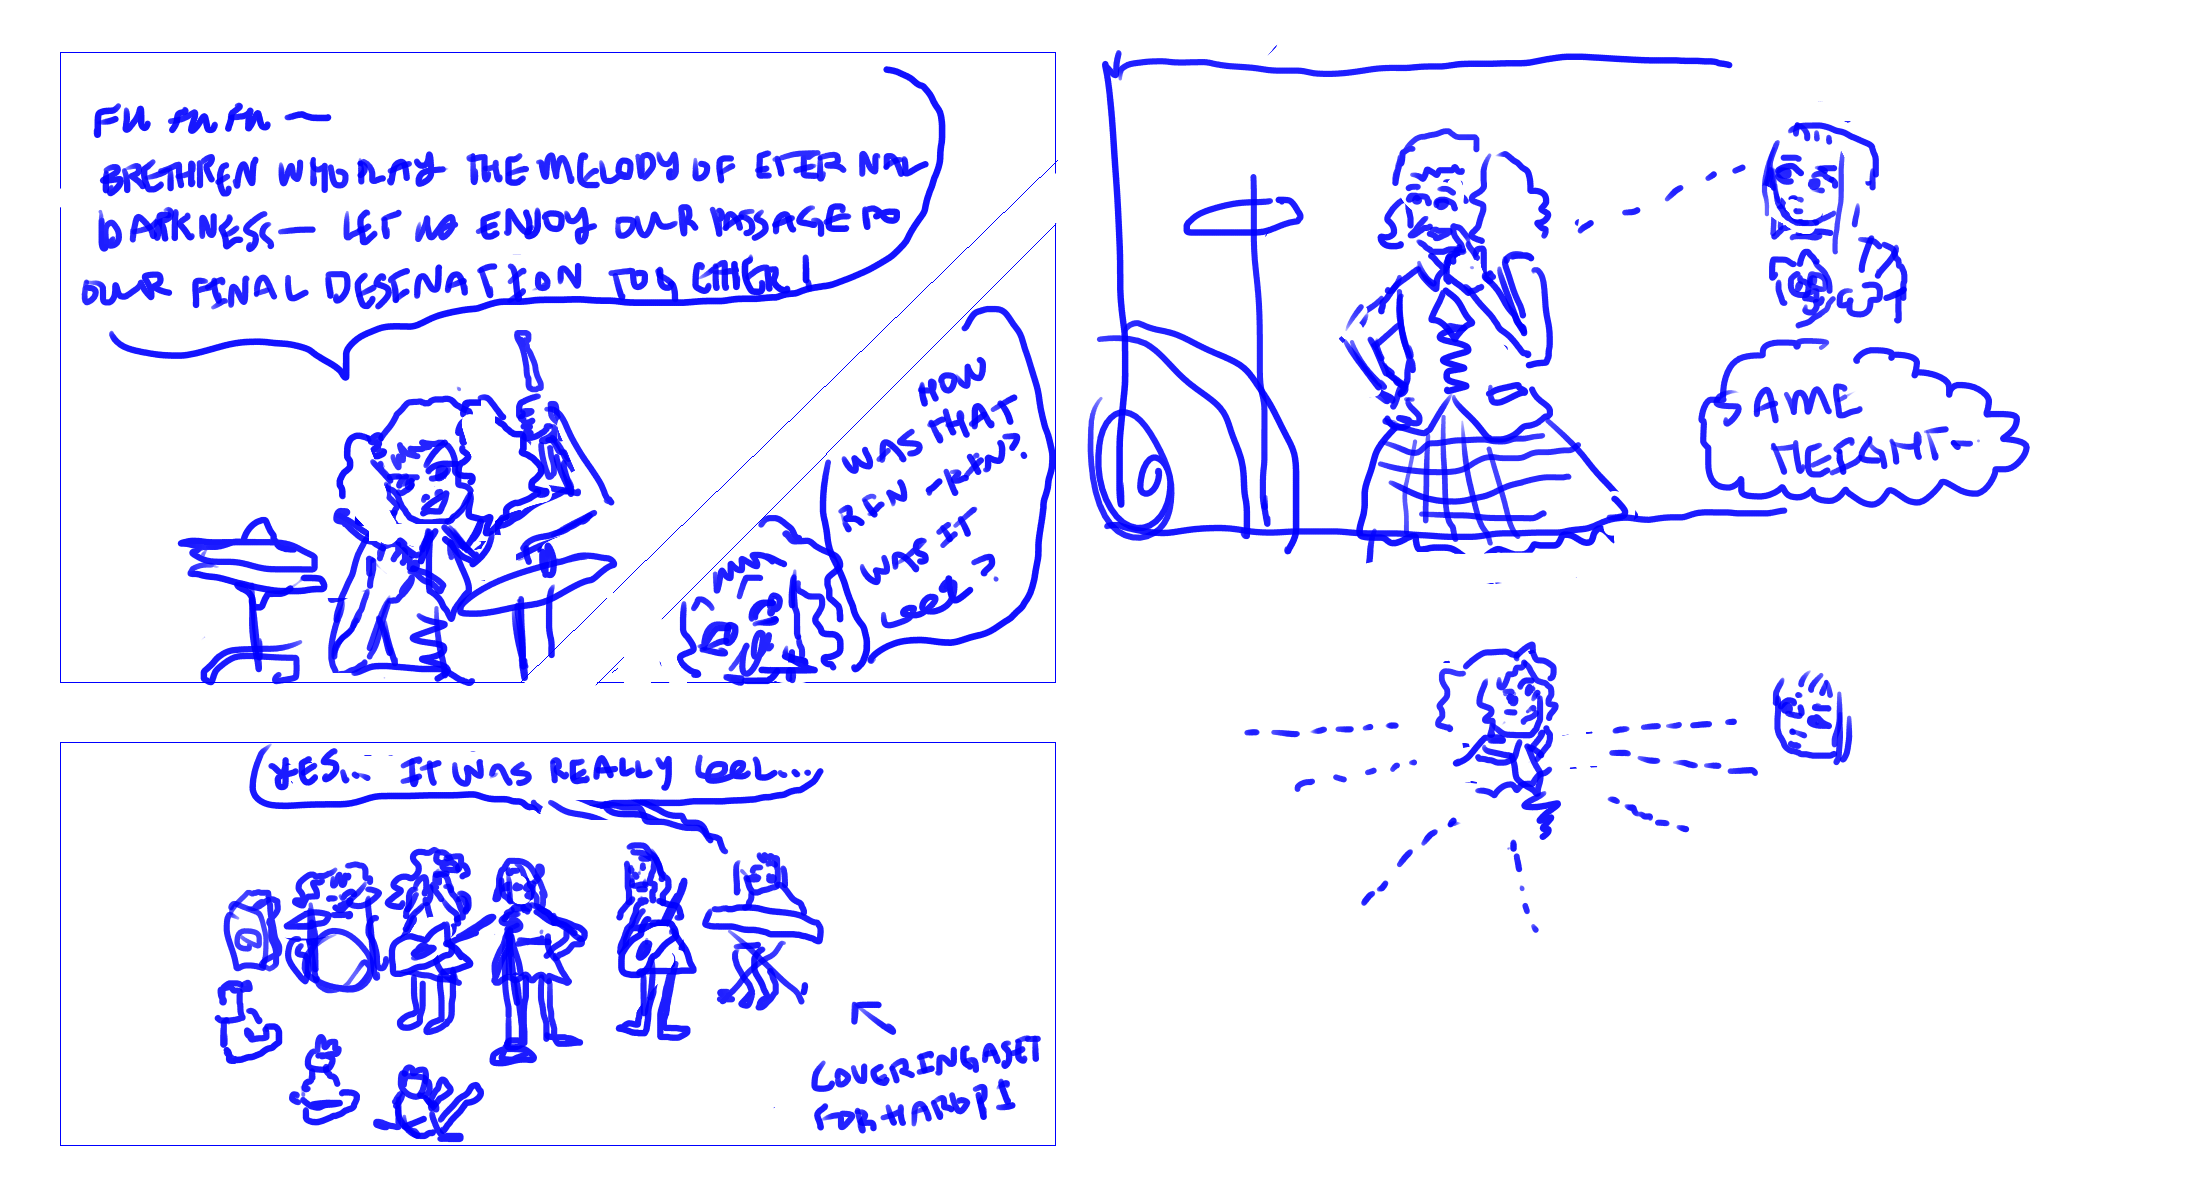 FU FU FU —
BRETHREN WHO PLAY THE MELODY OF ETERNAL
DARKNESS — LET US ENJOY OUR PASSAGE TO
OUR FINAL DESTNATION TOGETHER!
HOW
WAS THAT
RIN-RIN?
WAS IT
COOL?
YES... IT WAS REALLY COOL...
COVERING A SET
FOR HAROPI
SAME
HEIGHT